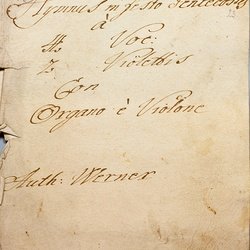 Hymnus in festo Pentecostes
à
4 Voc:
2 Violettis
Con
Organo è Violone
Auth: Werner